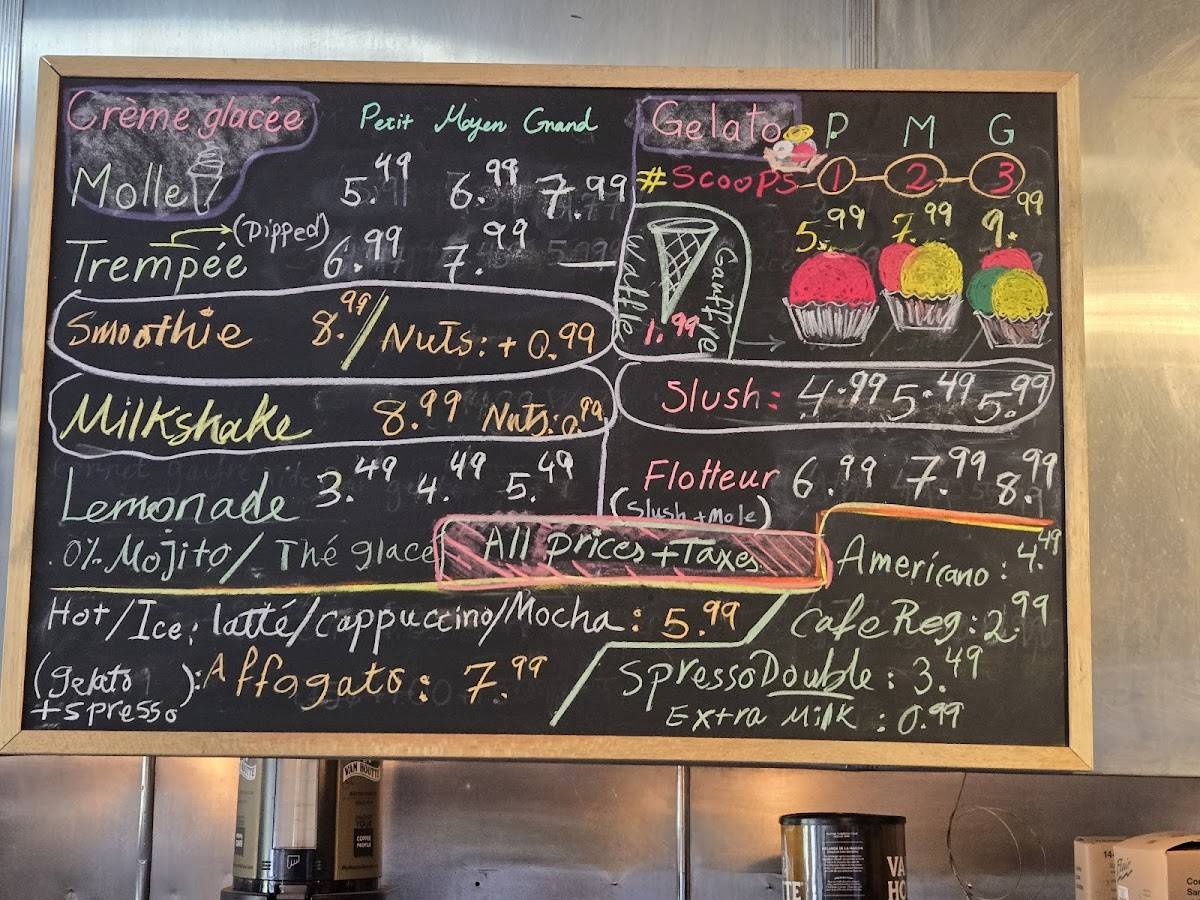 Crème glacée Petit Moyen Grand
Molle 5.49 6.99 7.99
(Dipped)
Trempée 6.99 7.99 —
Smoothie 8.99 / Nuts: + 0.99
Milkshake 8.99 Nuts: 0.99
Lemonade 3.49 4.49 5.49
0% Mojito / Thé glace
Gelato P M G
#Scoops 1 2 3
5.99 7.99 9.99
Waffle
Gauffre
1.99
Slush: 4.99 5.49 5.99
Flotteur 6.99 7.99 8.99
(Slush + Mole)
All prices + Taxes
Hot/Ice: latté/cappuccino/Mocha: 5.99
(gelato + spresso): Affogato: 7.99
Americano: 4.49
Cafe Reg: 2.99
Spresso Double: 3.49
Extra Milk: 0.99
VAN HOUTTE
VA
HO